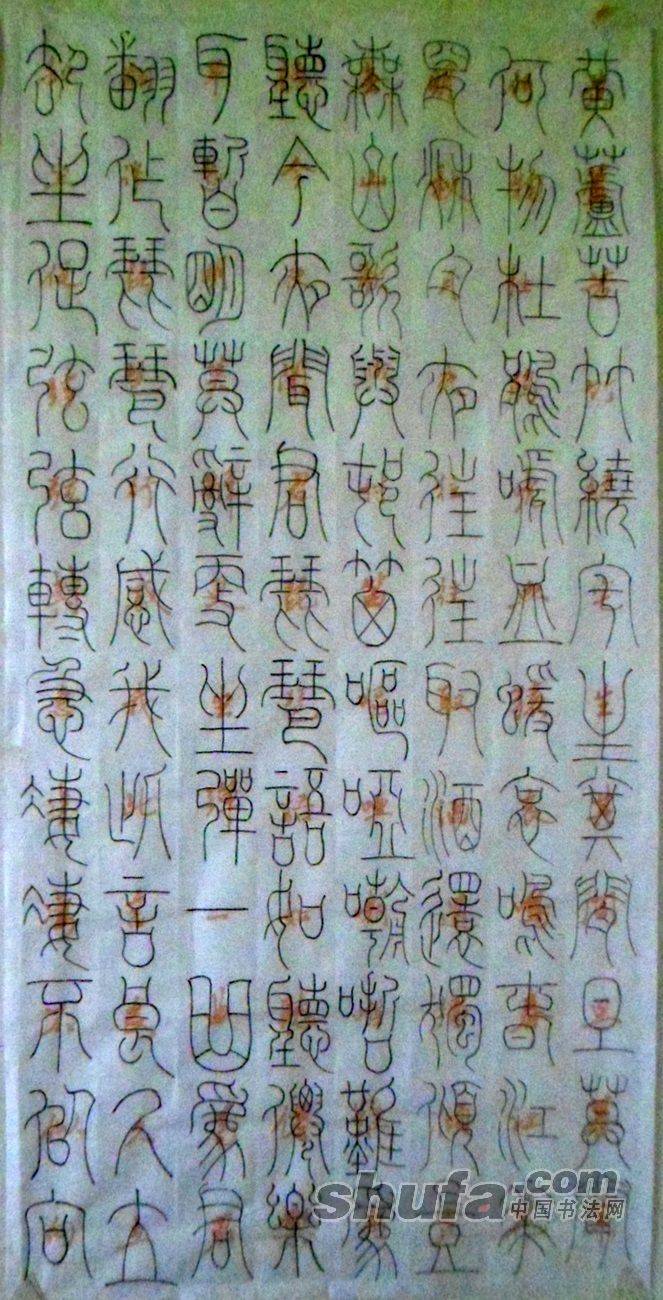 黃蘆苦竹繞宅生其間旦暮聞
何物杜鵑嗁血蝯哀鳴春江花
朝秋月夜往往取酒還獨傾豈
無山歌與邨笛嘔啞嘲哳難為
聽今夜聞君琵琶語如聽僊樂
耳暫明莫辭更坐彈一曲為君
翻作琵琶行感我此言良久立
卻坐促弦弦轉急淒淒不似向
shufa.com
中国书法网